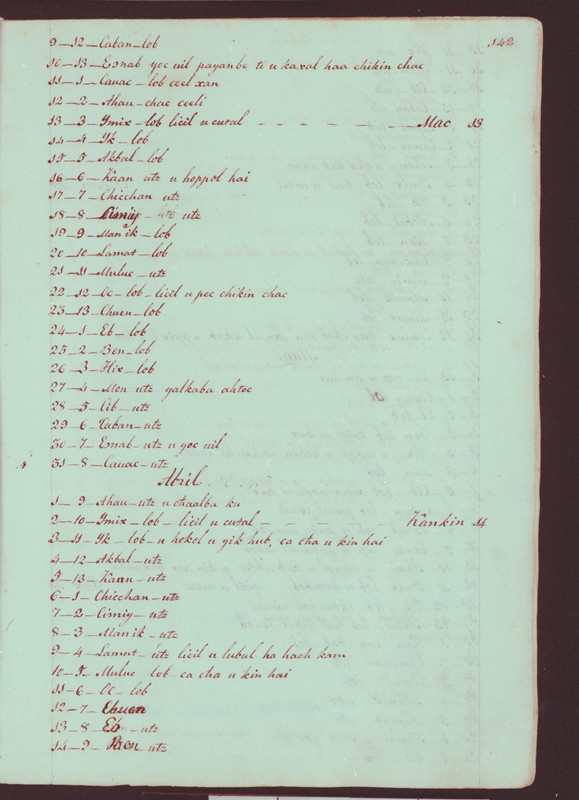 142
9-12-Caban-lob
10-13-Esnab yoc uil payanbe ti u kaxal haa chikin chac
11-1-Cauac-lob ceel xan
12-2-Ahau-chac ceeli
13-3-Ymix-lob licil u cutal - - - - - Mac 13
14-4-Yk-lob
15-5-Akbal-lob
16-6-Kaan utz u hoppol hai
17-7-Chicchan utz
18-8-Cimiy- utz
19-9-Manik-lob
20-10-Lamat-lob
21-11-Muluc-utz
22-12-Oc-lob-licil u pec chikin chac
23-13-Chuen-lob
24-1-Eb-lob
25-2-Ben-lob
26-3-Hix-lob
27-4-Men utz yalkaba ahtoc
28-5-Cib-utz
29-6-Caban-utz
30-7-Esnab-utz u yoc uil
31-8-Cauac-utz
Abril
1-9-Ahau-utz u chaalba ku
2-10-Ymix-lob-licil u cutal - - - - - Kankin 14
3-11-Yk-lob-u hokol u yik hub, ca cha u kin hai
4-12-Akbal-utz
5-13-Kaan-utz
6-1-Chicchan-utz
7-2-Cimiy-utz
8-3-Manik-utz
9-4-Lamat-utz licil u lubul ha hach kam
10-5-Muluc lob-ca cha u kin hai
11-6-Oc-lob
12-7-Chuen
13-8-Eb-utz
14-9-Ben utz